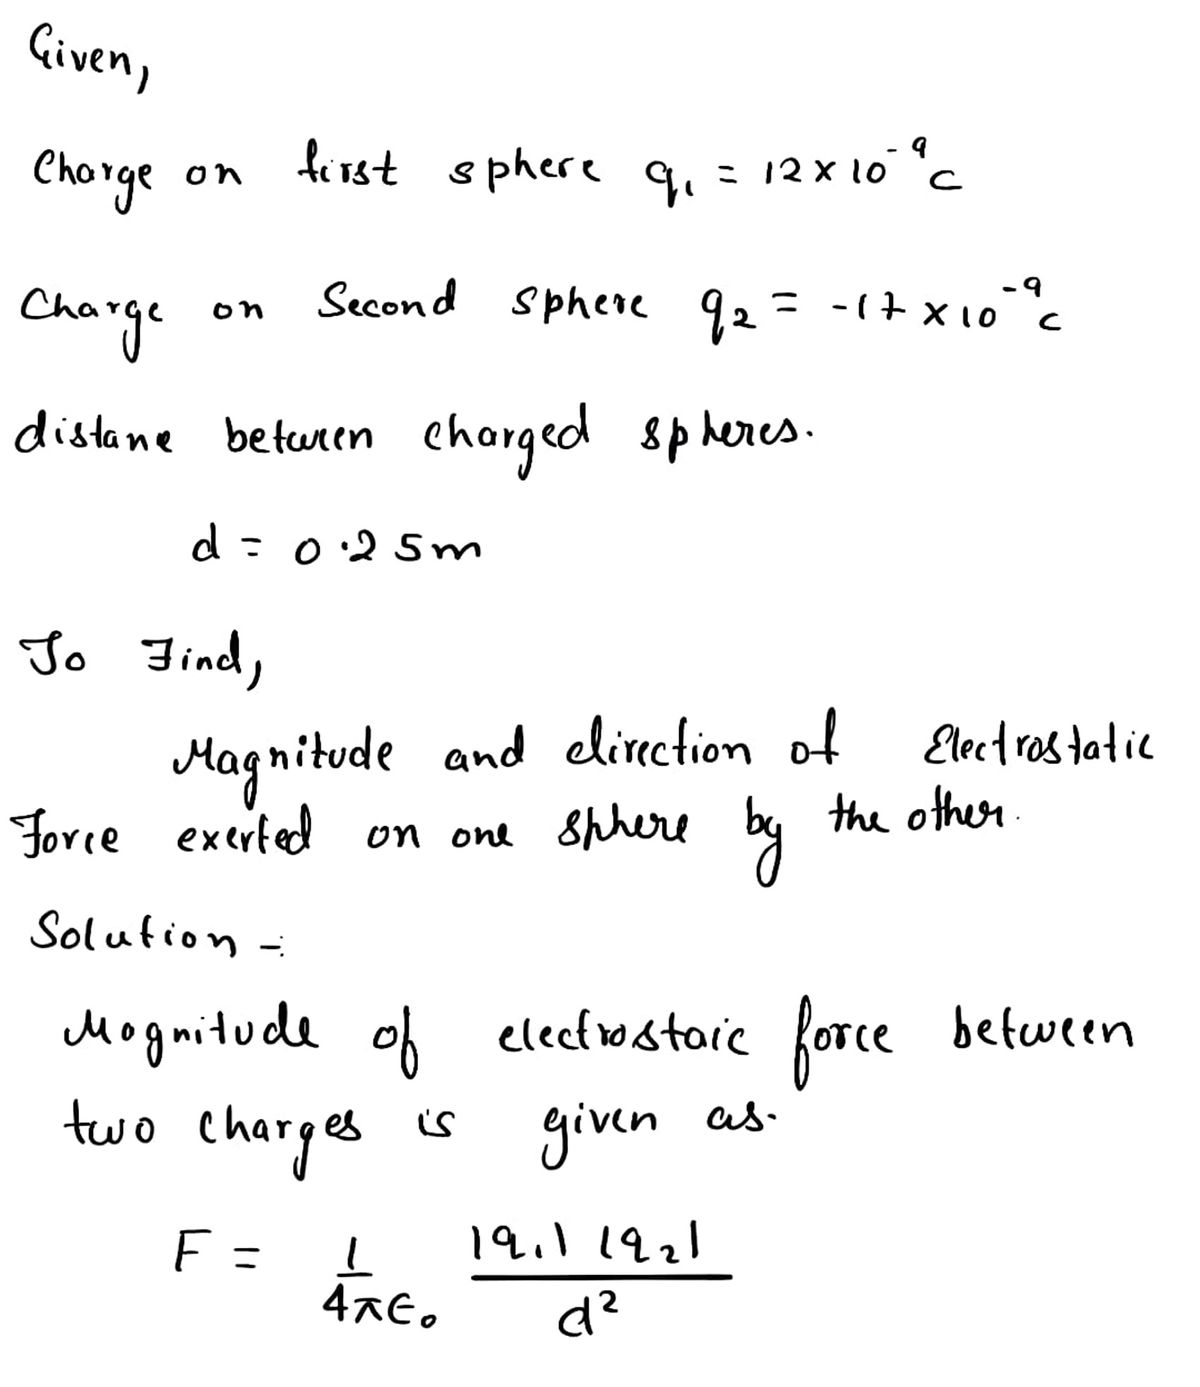 Given,
Charge on first sphere q₁ = 12 × 10⁻⁹ c
Charge on Second sphere q₂ = -17 × 10⁻⁹ c
distane between charged spheres.
d = 0.25m
To Find,
Magnitude and direction of Electrostatic
Force exerted on one sphere by the other.
Solution -:
Magnitude of electrostaic force between
two charges is given as.
F = 1/4πϵ₀ |q₁| |q₂|/d²